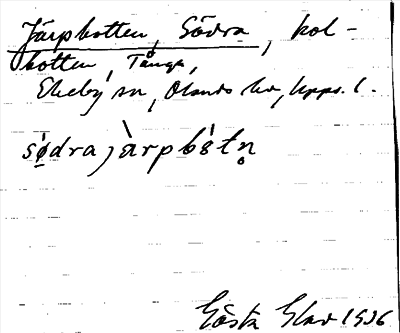 Järpbotten, Södra, kol-
botten, Tånga,
Ekeby sn, Olands hd, Upps. l.
sø̀drajàrpbɵ̀tn̥
Gösta Elav 1936